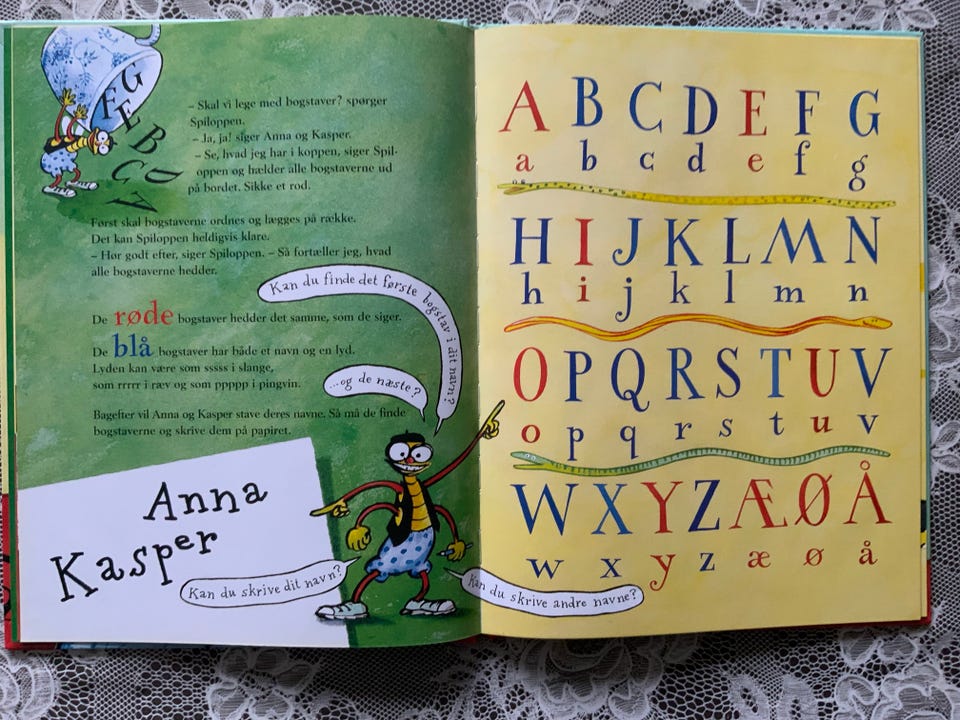 F G
E
B
C D
A
– Skal vi lege med bogstaver? spørger
Spiloppen.
– Ja, ja! siger Anna og Kasper.
– Se, hvad jeg har i koppen, siger Spil-
oppen og hælder alle bogstaverne ud
på bordet. Sikke et rod.
Først skal bogstaverne ordnes og lægges på række.
Det kan Spiloppen heldigvis klare.
– Hør godt efter, siger Spiloppen. – Så fortæller jeg, hvad
alle bogstaverne hedder.
Kan du finde det første bogstav i dit navn?
De røde bogstaver hedder det samme, som de siger.
De blå bogstaver har både et navn og en lyd.
Lyden kan være som sssss i slange,
som rrrrr i ræv og som ppppp i pingvin.
...og de næste?
Bagefter vil Anna og Kasper stave deres navne. Så må de finde
bogstaverne og skrive dem på papiret.
Anna
Kasper
Kan du skrive dit navn?
Kan du skrive andre navne?
A B C D E F G
a b c d e f g
H I J K L M N
h i j k l m n
O P Q R S T U V
o p q r s t u v
W X Y Z Æ Ø Å
w x y z æ ø å